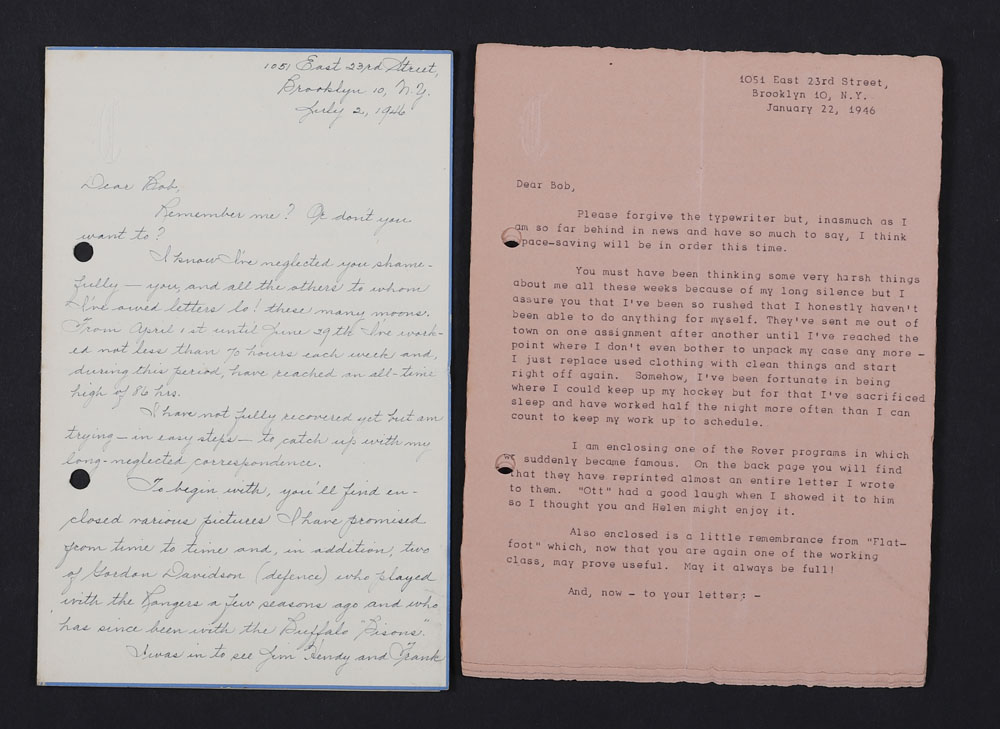 1051 East 23rd Street,
Brooklyn 10, N.Y.
July 2, 1946
Dear Bob,
Remember me? Or don't you
want to?
I know I've neglected you shame-
fully — you, and all the others to whom
I've owed letters lo! these many moons.
From April 1st until June 29th I've work-
ed not less than 70 hours each week and,
during this period, have reached an all-time
high of 86 hrs.
I have not fully recovered yet but am
trying — in easy steps — to catch up with my
long-neglected correspondence.
To begin with, you'll find en-
closed various pictures I have promised
from time to time and, in addition, two
of Gordon Davidson (defence) who played
with the Rangers a few seasons ago and who
has since been with the Buffalo "Bisons".
I was in to see Jim Hendy and Frank
1051 East 23rd Street,
Brooklyn 10, N.Y.
January 22, 1946
Dear Bob,
Please forgive the typewriter but, inasmuch as I
am so far behind in news and have so much to say, I think
space-saving will be in order this time.
You must have been thinking some very harsh things
about me all these weeks because of my long silence but I
assure you that I've been so rushed that I honestly haven't
been able to do anything for myself. They've sent me out of
town on one assignment after another until I've reached the
point where I don't even bother to unpack my case any more -
I just replace used clothing with clean things and start
right off again. Somehow, I've been fortunate in being
where I could keep up my hockey but for that I've sacrificed
sleep and have worked half the night more often than I can
count to keep my work up to schedule.
I am enclosing one of the Rover programs in which
we suddenly became famous. On the back page you will find
that they have reprinted almost an entire letter I wrote
to them. "Ott" had a good laugh when I showed it to him
so I thought you and Helen might enjoy it.
Also enclosed is a little remembrance from "Flat-
foot" which, now that you are again one of the working
class, may prove useful. May it always be full!
And, now - to your letter: -